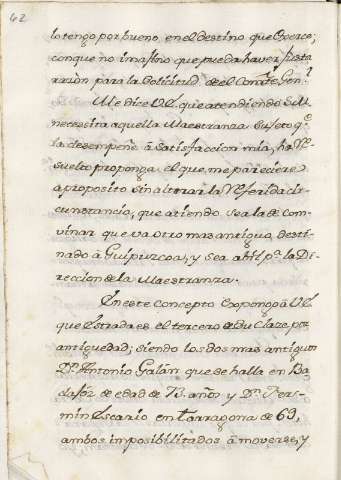 62
lo tengo por bueno en el destino que Exerce;
conque no imagino que pueda haver justa
razon para la solicitud de el Comte. Genl.
Me dice VE. que atendiendo S.M.
necesita aquella Maestranza Sugeto qe.
la desempeñe à satisfaccion mia, ha Re
suelto proponga el que me pareciere
a proposito sin alterar la Referida cir
cunstancia, que atiendo sea la de com
vinar que va otro mas antiguo desti
nado à Guipuzcoa, y sea abil pa. la Di
reccion de la Maestranza.
En este concepto Expongo à VE.
que Estrada es el tercero de su Clase por
antiguedad; siendo los dos mas antiguos
Dn. Antonio Galàn que se halla en Ba
dajoz de edad de 73. años y Dn. Fer
min Escario en Tarragona de 69,
ambos imposibilitados à moverse, y